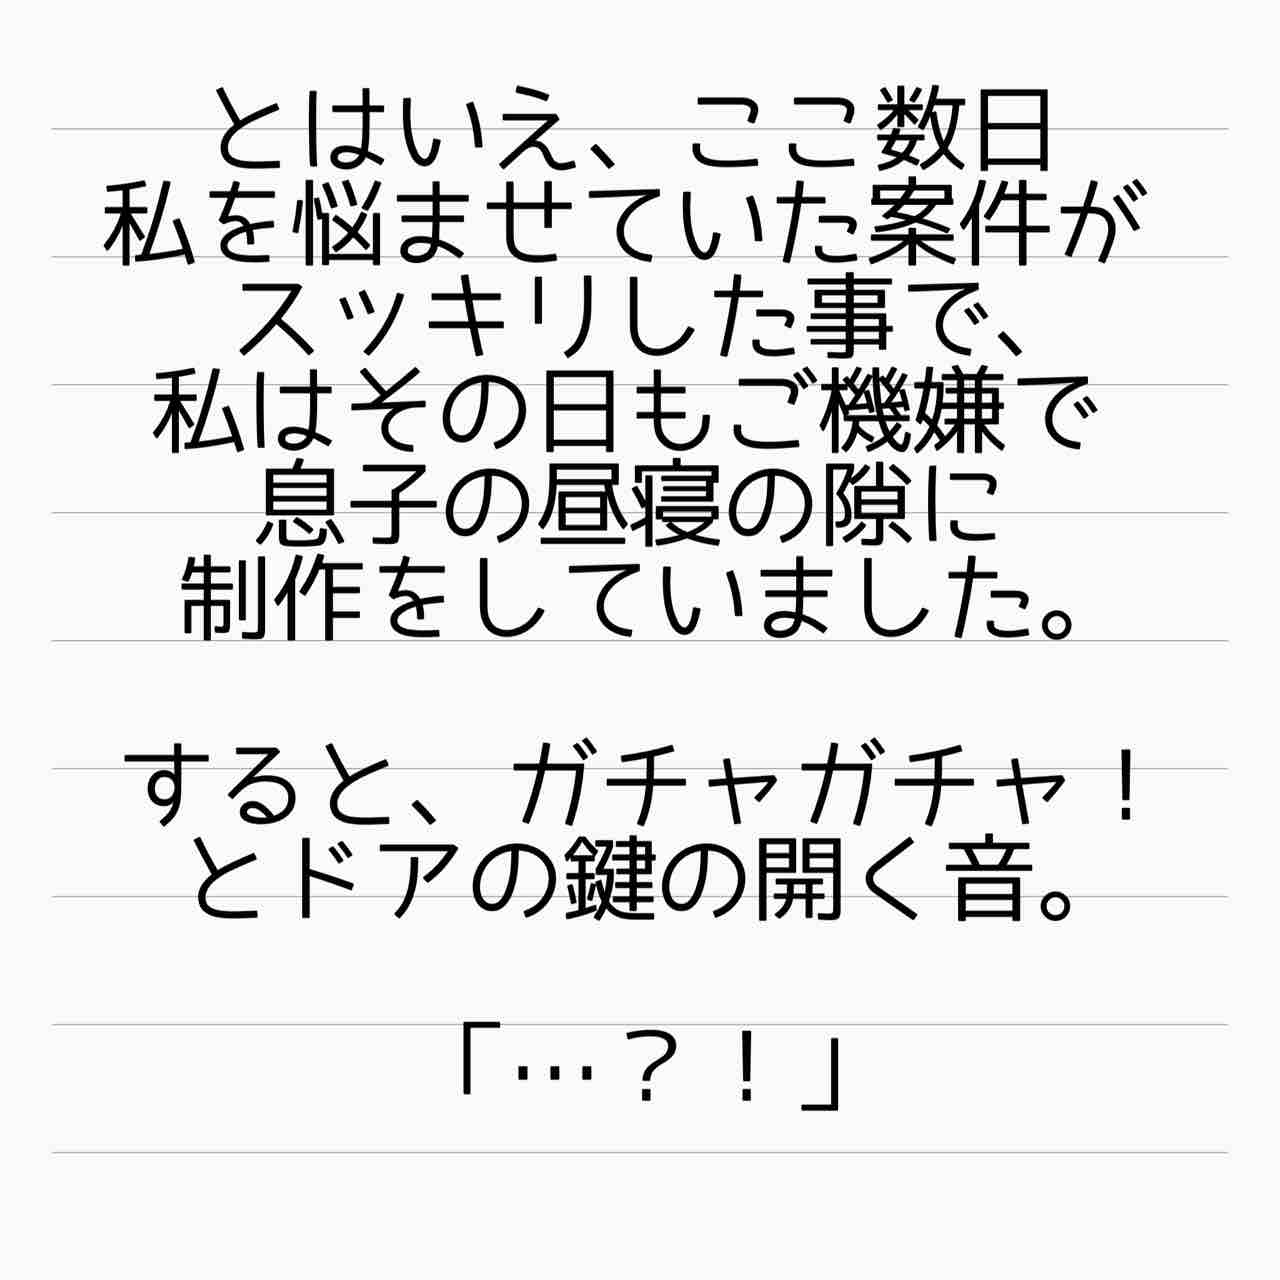 とはいえ、ここ数日
私を悩ませていた案件が
スッキリした事で、
私はその日もご機嫌で
息子の昼寝の隙に
制作をしていました。
すると、ガチャガチャ！
とドアの鍵の開く音。
「…？！」